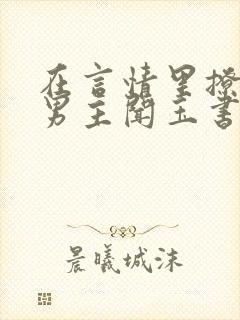 在言情里撩
男主闻玉书
晨曦城沫